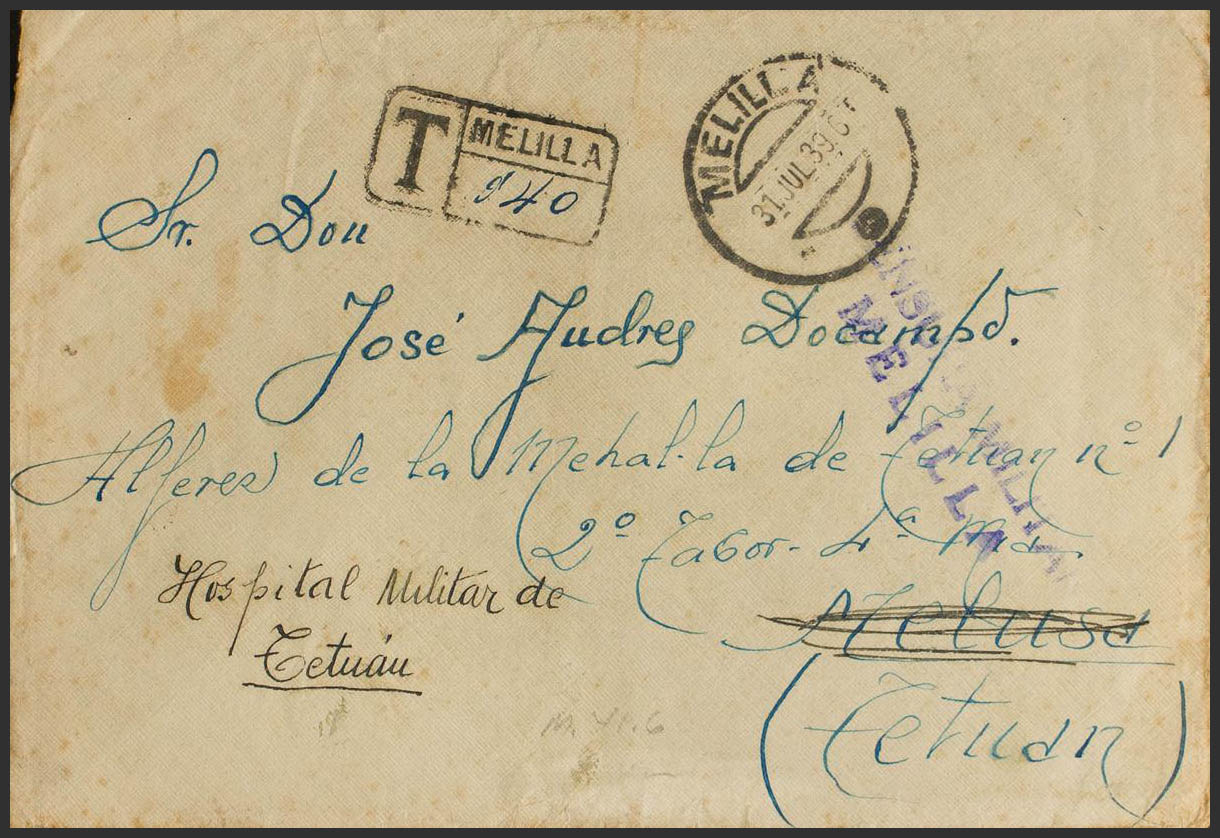 T MELILLA
940
MELILLA
31.JUL.39.6T
Sr. Don
José Andres Docampo.
CENSURA MILITAR
MELILLA
Alferez de la Mehal·la de Tetuan nº 1
2º Tabor - 4ª mia
Hospital Militar de
Tetuán
(Tetuan)